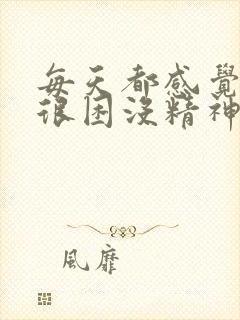 每天都感覺
很困沒精神
風靡